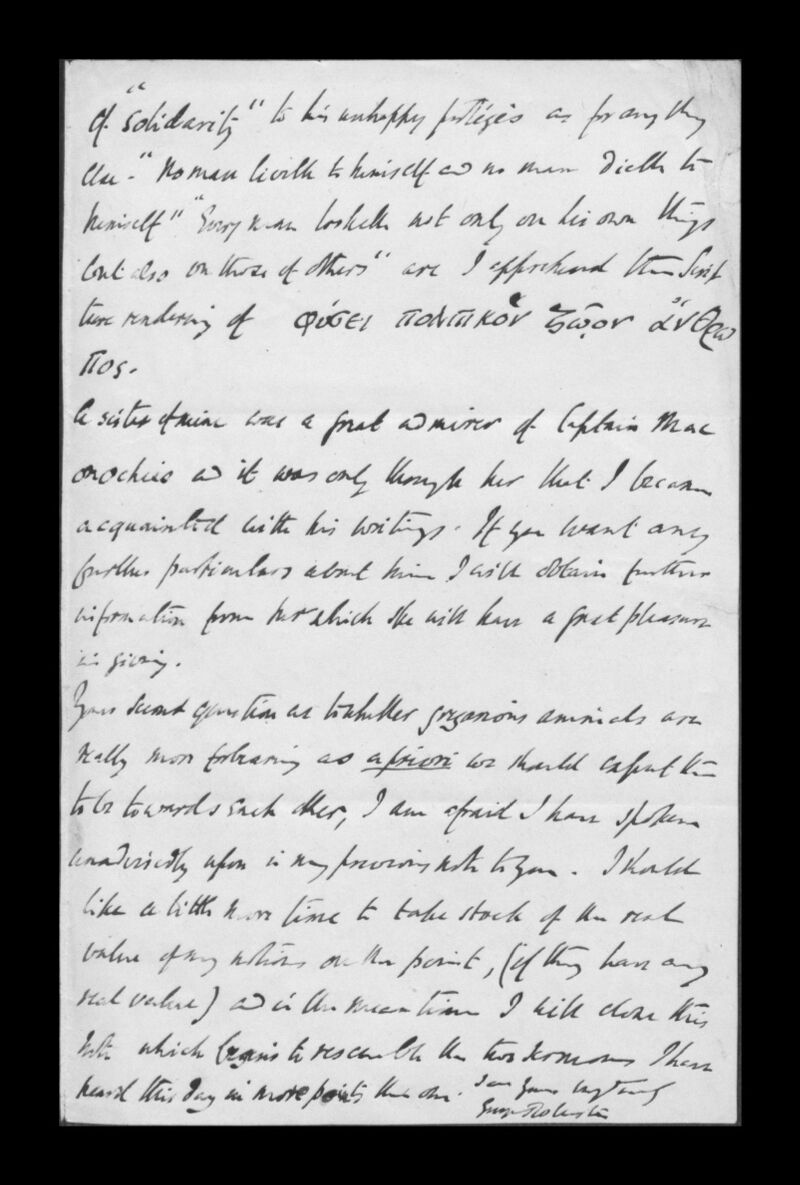 of "Solidarity" to his unhappy protégés as for any thing
else - "No man liveth to himself and no man dieth to
himself" "Every man looketh not only on his own things
but also on those of others" are I apprehend the Scrip
ture rendering of φύσει πολιτικὸν ζῷον ἄνθρω
πος.
A sister of mine was a great admirer of Captain Mac
onochie and it was only through her that I became
acquainted with his writings. If you want any
further particulars about him I will obtain further
information from her which she will have a great pleasure
in giving.
Your second question as to whether gregarious animals are
really more forbearing as a priori we should expect them
to be towards each other, I am afraid I have spoken
unadvisedly upon in my previous note to you. I should
like a little more time to take stock of the real
value of my notions on the point, (if they have any
real value) and in the mean time I will close this
note which begins to resemble the two sermons I have
heard this day in more points than one. I am Yours very truly
George Rolleston